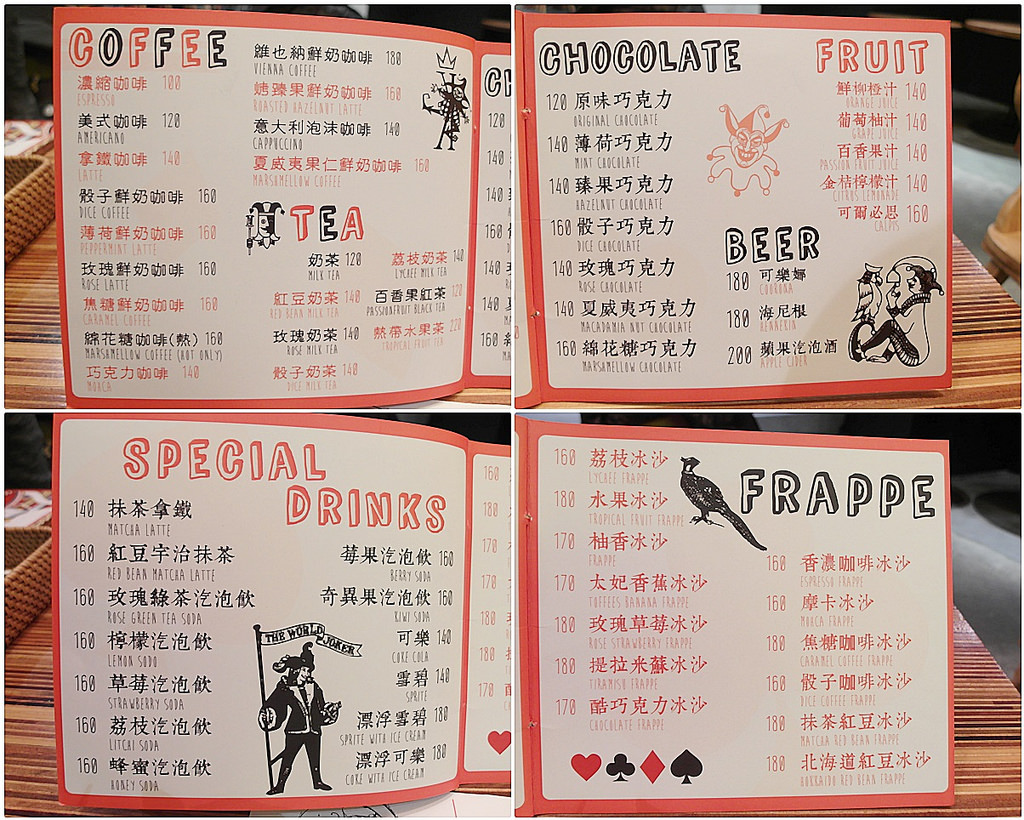 COFFEE
濃縮咖啡 100
ESPRESSO
美式咖啡 120
AMERICANO
拿鐵咖啡 140
LATTE
骰子鮮奶咖啡 160
DICE COFFEE
薄荷鮮奶咖啡 160
PEPPERMINT LATTE
玫瑰鮮奶咖啡 160
ROSE LATTE
焦糖鮮奶咖啡 160
CARAMEL COFFEE
綿花糖咖啡(熱) 160
MARSHMELLOW COFFEE (HOT ONLY)
巧克力咖啡 140
MOACA
維也納鮮奶咖啡 180
VIENNA COFFEE
榛果鮮奶咖啡 160
ROASTED HAZELNUT LATTE
意大利泡沫咖啡 140
CAPPUCCINO
夏威夷果仁鮮奶咖啡 160
MARSHMELLOW COFFEE
TEA
奶茶 120
MILK TEA
紅豆奶茶 140
RED BEAN MILK TEA
玫瑰奶茶 140
ROSE MILK TEA
骰子奶茶 140
DICE MILK TEA
荔枝奶茶 140
LYCHEE MILK TEA
百香果紅茶 120
PASSIONFRUIT BLACK TEA
熱帶水果茶 220
TROPICAL FRUIT TEA
CHOCOLATE
120 原味巧克力
ORIGINAL CHOCOLATE
140 薄荷巧克力
MINT CHOCOLATE
140 臻果巧克力
HAZELNUT CHOCOLATE
160 骰子巧克力
DICE CHOCOLATE
140 玫瑰巧克力
ROSE CHOCOLATE
140 夏威夷巧克力
MACADAMIA NUT CHOCOLATE
160 綿花糖巧克力
MARSHMELLOW CHOCOLATE
FRUIT
鮮柳橙汁 140
ORANGE JUICE
葡萄柚汁 140
GRAPE JUICE
百香果汁 140
PASSION FRUIT JUICE
金桔檸檬汁 140
CITRUS LEMONADE
可爾必思 160
CALPIS
BEER
180 可樂娜
COORONA
180 海尼根
HENNEKIN
200 蘋果汽泡酒
APPLE CIDER
SPECIAL
DRINKS
140 抹茶拿鐵
MATCHA LATTE
160 紅豆宇治抹茶
RED BEAN MATCHA LATTE
160 玫瑰綠茶汽泡飲
ROSE GREEN TEA SODA
160 檸檬汽泡飲
LEMON SODO
160 草莓汽泡飲
STRAWBERRY SODA
160 荔枝汽泡飲
LITCHI SODA
160 蜂蜜汽泡飲
HONEY SODA
莓果汽泡飲 160
BERRY SODA
奇異果汽泡飲 160
KIWI SODA
可樂 140
COKE COLA
雪碧 140
SPRITE
漂浮雪碧 180
SPRITE WITH ICE CREAM
漂浮可樂 180
COKE WITH ICE CREAM
THE WORLD JOKER
FRAPPE
160 荔枝冰沙
LYCHEE FRAPPE
180 水果冰沙
TROPICAL FRUIT FRAPPE
170 柚香冰沙
FRAPPE
170 太妃香蕉冰沙
TOFFEES BANANA FRAPPE
180 玫瑰草莓冰沙
ROSE STRAWBERRY FRAPPE
180 提拉米蘇冰沙
TIRAMISU FRAPPE
170 酷巧克力冰沙
CHOCOLATE FRAPPE
160 香濃咖啡冰沙
ESPRESSO FRAPPE
160 摩卡冰沙
MOACA FRAPPE
180 焦糖咖啡冰沙
CARAMEL COFFEE FRAPPE
160 骰子咖啡冰沙
DICE COFFEE FRAPPE
180 抹茶紅豆冰沙
MATCHA RED BEAN FRAPPE
180 北海道紅豆冰沙
HOKKAIDO RED BEAN FRAPPE